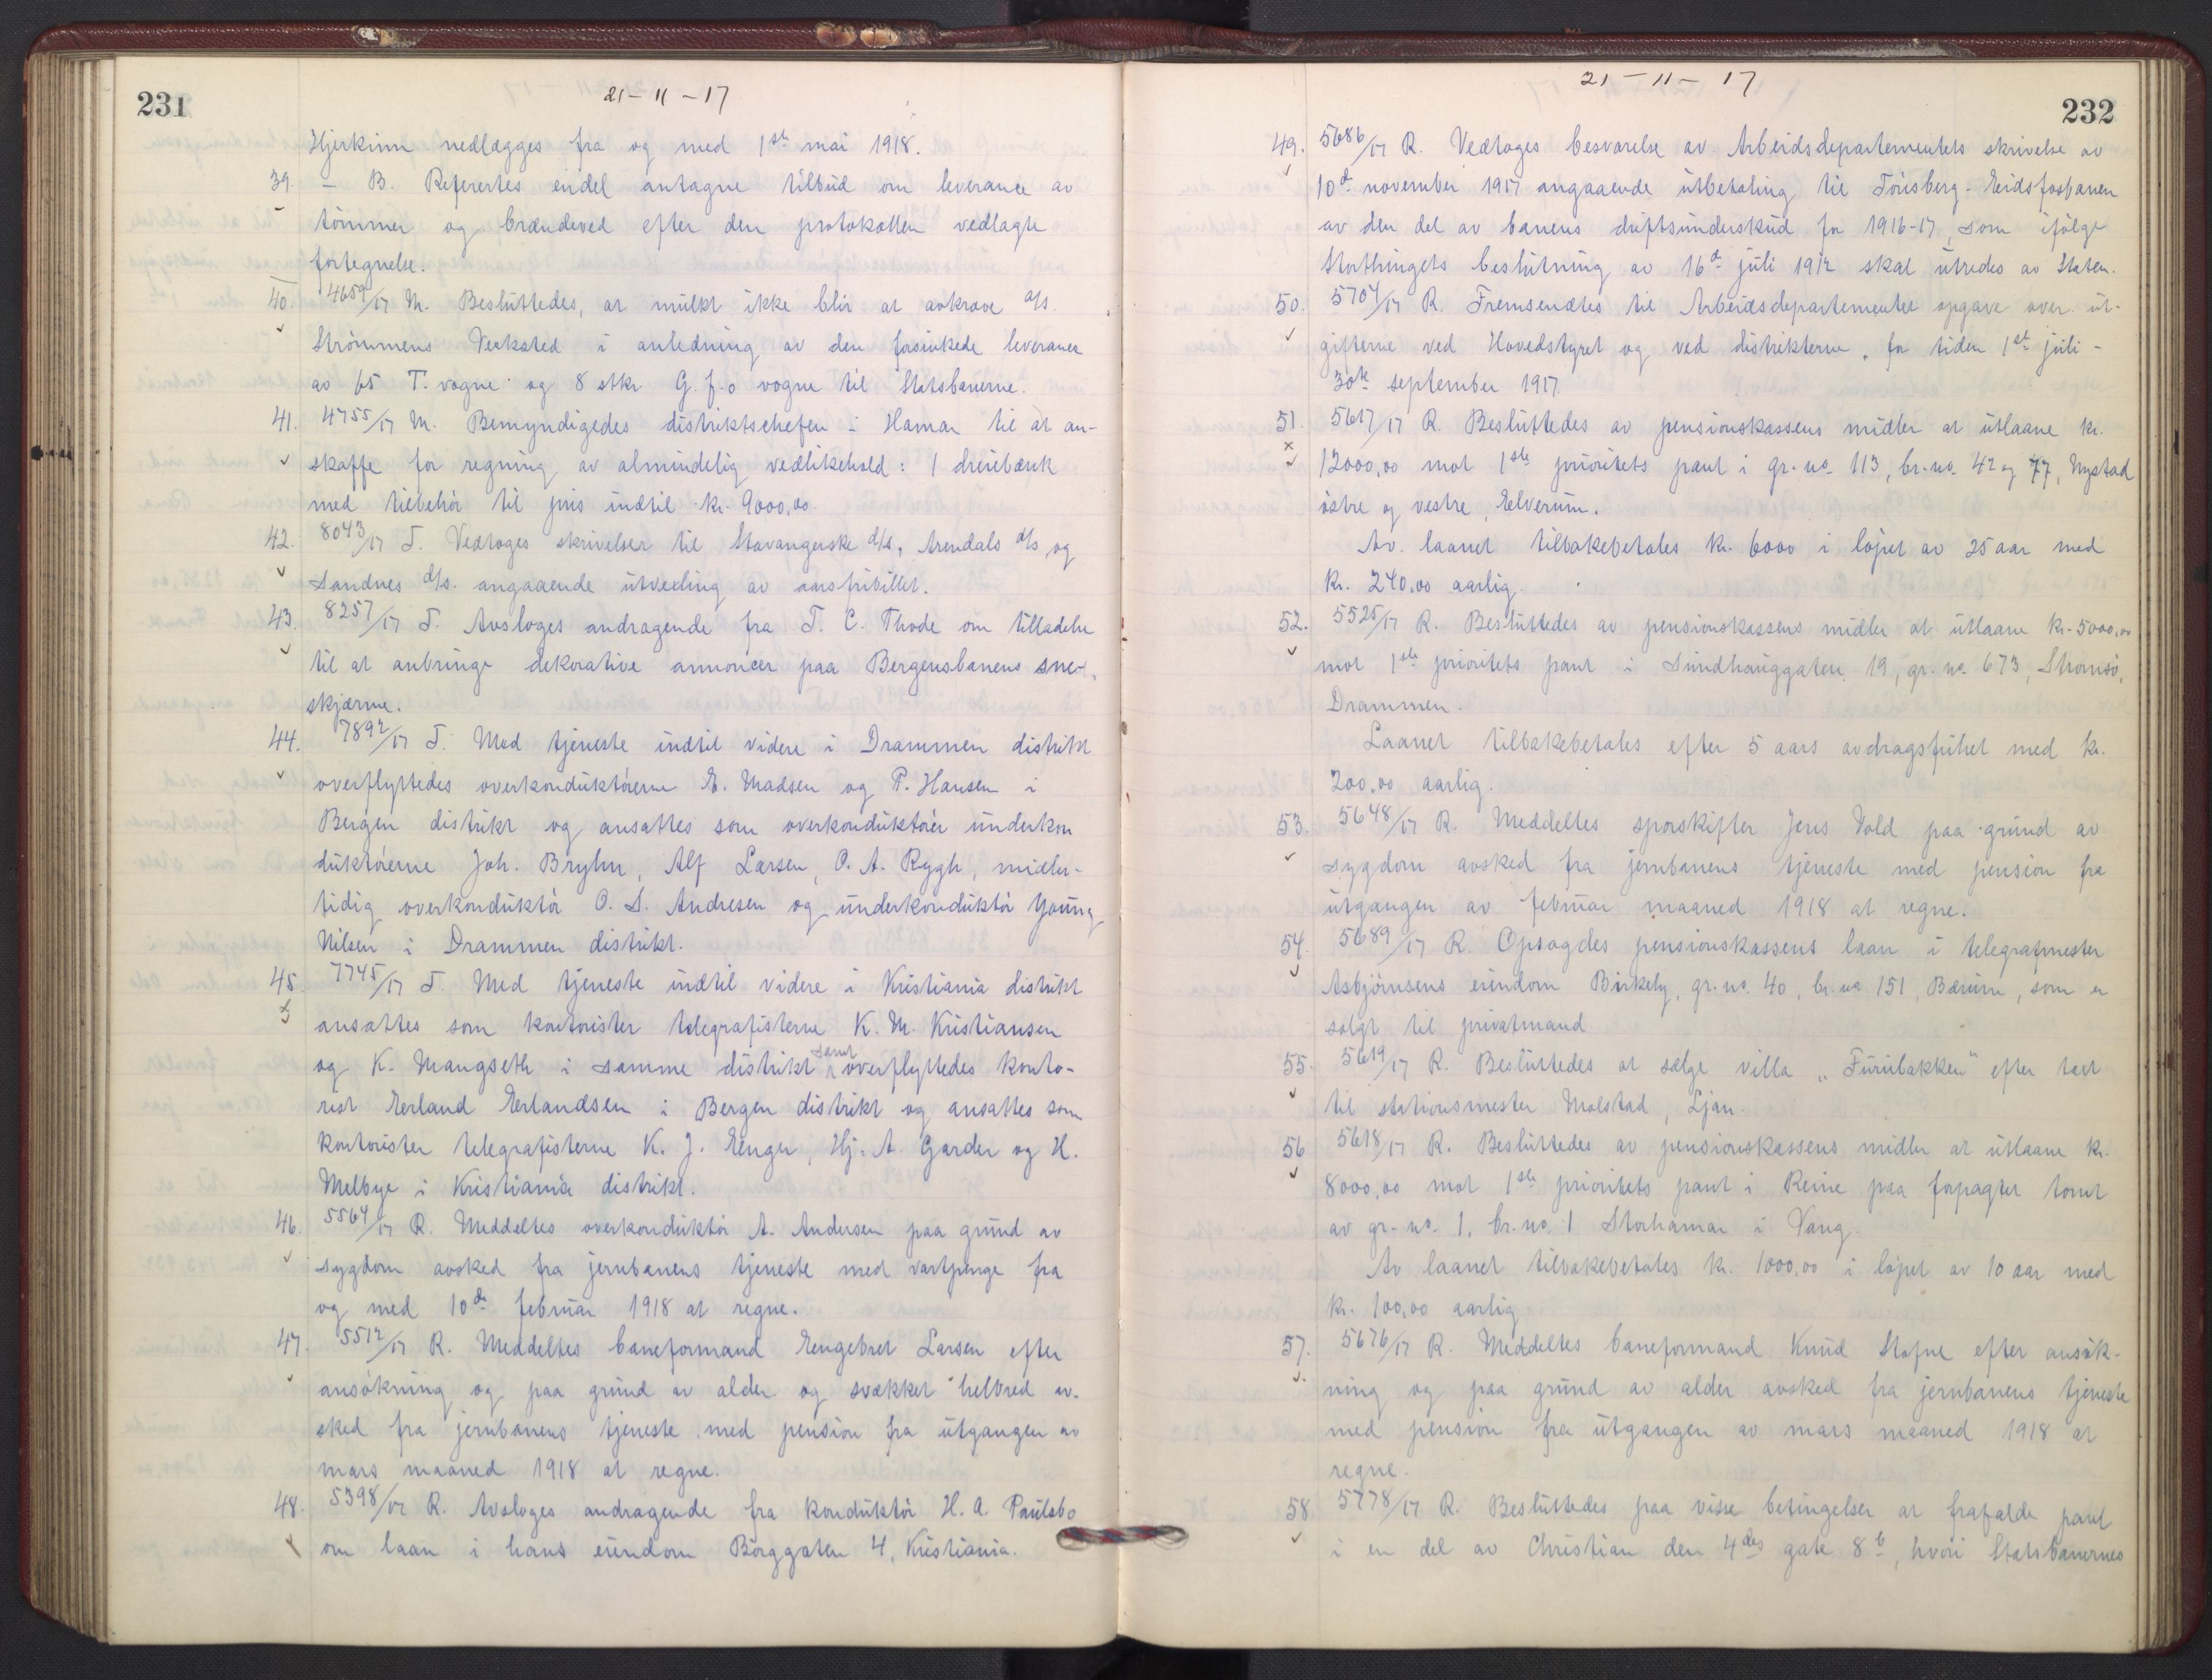 231
21-11-17
Hjerkinn nedlægges fra og med 1ste mai 1918.
39. - B. Refereres endel antagne tilbud om leveranse av
tømmer og brændeved efter den protokollen vedlagte
fortegnelse.
40. 4659/17 M. Besluttedes, at mulkt ikke blir at avkræve A/S.
Strømmens Verksted i anledning av den forsinkede leveranse
av 65 T. vogne og 8 stkr G.f.o vogne til Statsbanerne.
41. 4755/17 M. Bemyndigedes distriktschefen i Hamar til at an-
skaffe for regning av almindelig vedlikehold: 1 dreiebænk
med tilbehör til pris indtil kr. 9000,00.
42. 8043/17 T. Vedtoges skrivelser til Stavangerske d/s, Arendals d/s og
Sandnes d/s. angaaende utveksling av aarsfribillet.
43. 8257/17 T. Avsloges andragende fra T. C. Thode om tilladelse
til at anbringe dekorative annoncer paa Bergensbanens sne-
skjærme.
44. 7892/17 T. Med tjeneste indtil videre i Drammen distrikt
overflyttedes overkonduktörerne E. Madsen og P. Hansen i
Bergen distrikt og ansattes som overkonduktörer underkon
duktörerne Joh. Bryhn, Alf Larsen, O. A. Rygh, midler-
tidig overkonduktör O. S. Andresen og underkonduktör Young
Nilsen i Drammen distrikt.
45. 7745/17 T. Med tjeneste indtil videre i Kristiania distrikt
ansattes som kontorister telegrafisterne K. M. Kristiansen
og K. Mangseth i samme distrikt samt overflyttedes konto-
rist Erland Erlandsen i Bergen distrikt og ansattes som
kontorister telegrafisterne K. J. Enger, Hj. A. Garder og H.
Melbye i Kristiania distrikt.
46. 5564/17 R. Meddeltes overkonduktör A. Andersen paa grund av
sygdom avsked fra jernbanens tjeneste med vartpenge fra
og med 10de februar 1918 at regne.
47. 5512/17 R. Meddeltes baneformand Engebret Larsen efter
ansökning og paa grund av alder og svækket helbred av-
sked fra jernbanens tjeneste med pension fra utgangen av
mars maaned 1918 at regne.
48. 5398/17 R. Avsloges andragende fra konduktör H. A. Paulsbo
om laan i hans eiendom Borggaten 4, Kristiania.
232
21-11-17
49. 5686/17 R. Vedtoges besvarelse av Arbeidsdepartementets skrivelse av
10de november 1917 angaaende utbetaling til Tönsberg-Eidsfosbanen
av den del av banens driftsunderskud for 1916-17, som ifölge
Storthingets beslutning av 16de juli 1912 skal utredes av Staten.
50. 5704/17 R. Fremsendtes til Arbeidsdepartementet opgave over ut-
gifterne ved Hovedstyret og ved distrikterne for tiden 1ste juli -
30te september 1917.
51. 5617/17 R. Besluttedes av pensionskassens midler at utlaane kr.
12000,00 mot 1ste prioritets pant i gr. no. 113, br. no. 42 og 77, Nystad
östre og vestre, Elverum.
Av laanet tilbakebetales kr. 6000 i löpet av 25 aar med
kr. 240,00 aarlig.
52. 5525/17 R. Besluttedes av pensionskassens midler at utlaane kr. 5000,00
mot 1ste prioritets pant i Sundhauggaten 19, gr. no. 673, Strömsö,
Drammen.
Laanet tilbakebetales efter 5 aars avdragsfrihet med kr.
200,00 aarlig.
53. 5648/17 R. Meddeltes sporskifter Jens Vold paa grund av
sygdom avsked fra jernbanens tjeneste med pension fra
utgangen av februar maaned 1918 at regne.
54. 5689/17 R. Opsagdes pensionskassens laan i telegrafmester
Asbjörnsens eiendom Birkely, gr. no. 40, br. no 151, Bærum, som er
solgt til privatmand.
55. 5619/17 R. Besluttedes at sælge villa "Furubakken" efter takst
til stationsmester Molstad, Ljan.
56 5618/17 R. Besluttedes av pensionskassens midler at utlaane kr.
8000,00 mot 1ste prioritets pant i Reine paa forpagtet tomt
av gr. no. 1, br. no. 1 Storhamar i Vang.
Av laanet tilbakebetales kr. 1000,00 i löpet av 10 aar med
kr. 100,00 aarlig.
57. 5676/17 R. Meddeltes baneformand Knud Stafne efter ansök-
ning og paa grund av alder avsked fra jernbanens tjeneste
med pension fra utgangen av mars maaned 1918 at
regne.
58 5778/17 R. Besluttedes paa visse betingelser at frafalde pant
i en del av Christian den 4des gate 8b, hvori Statsbanernes